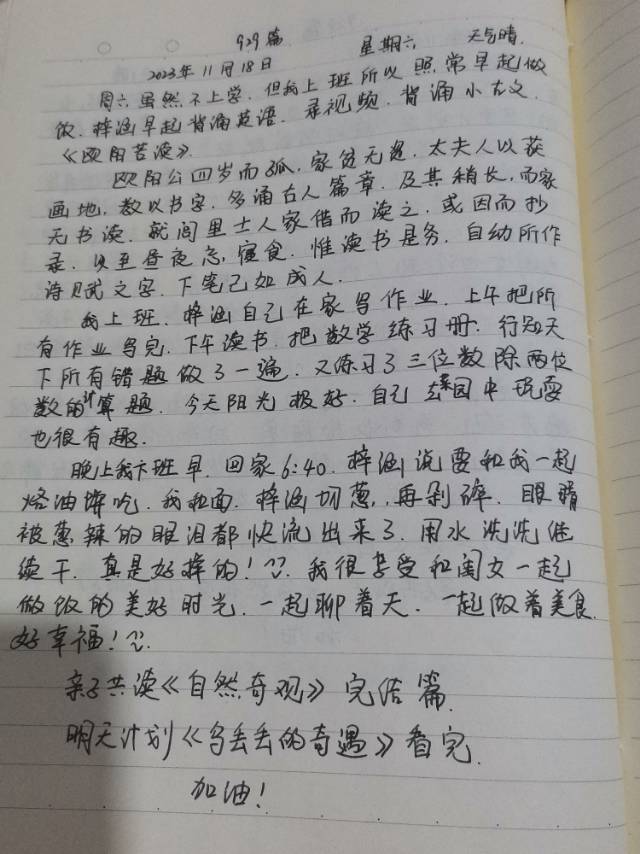 929篇
星期六 天气晴.
2023年11月18日
周六虽然不上学.但我上班所以照常早起做
饭.梓涵早起背诵英语.录视频.背诵小古文.
《欧阳苦读》.
欧阳公四岁而孤,家贫无资.太夫人以荻
画地,教以书字.多诵古人篇章.及其稍长,而家
无书读.就闾里士人家借而读之.或因而抄
录.以至昼夜忘寝食.惟读书是务.自幼所作
诗赋文字.下笔已如成人.
我上班.梓涵自己在家写作业.上午把所
有作业写完.下午读书.把数学练习册:行知天
下所有错题做了一遍.又练习了三位数除两位
数的计算题.今天阳光极好.自己去菜园中玩耍
也很有趣.
晚上我下班早.回家6:40.梓涵说要和我一起
烙油饼吃.我和面.梓涵切葱,再剁碎.眼睛
被葱辣的眼泪都快流出来了.用水洗洗继
续干.真是好样的!我很享受和闺女一起
做饭的美好时光.一起聊着天.一起做着美食.
好幸福!
亲子共读《自然奇观》完结篇.
明天计划《乌丢丢的奇遇》看完.
加油!